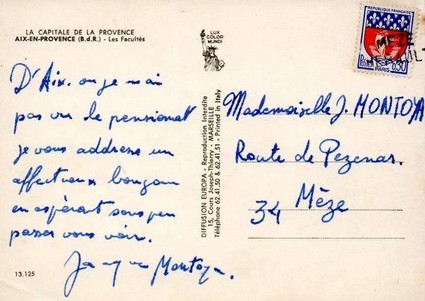 LA CAPITALE DE LA PROVENCE
AIX-EN-PROVENCE (B.d.R.) - Les Facultés
D'Aix. ou je n'ai
pas vu le pensionnat
je vous addresse un
affectueux bonjour
en espérant sous peu
passer vous voir.
Jacques Montoya.
13.125
LUX
COLOR
MUNDI
DIFFUSION EUROPA - Reproduction Interdite
15, Cours Joseph-Thierry - MARSEILLE
Téléphone 62.41.50 & 62.41.51 - Printed in Italy
REPUBLIQUE FRANÇAISE
0,30
PARIS
MEZE
HERAULT
Mademoiselle J. MONTOYA
Route de Pezenas.
34 Mèze